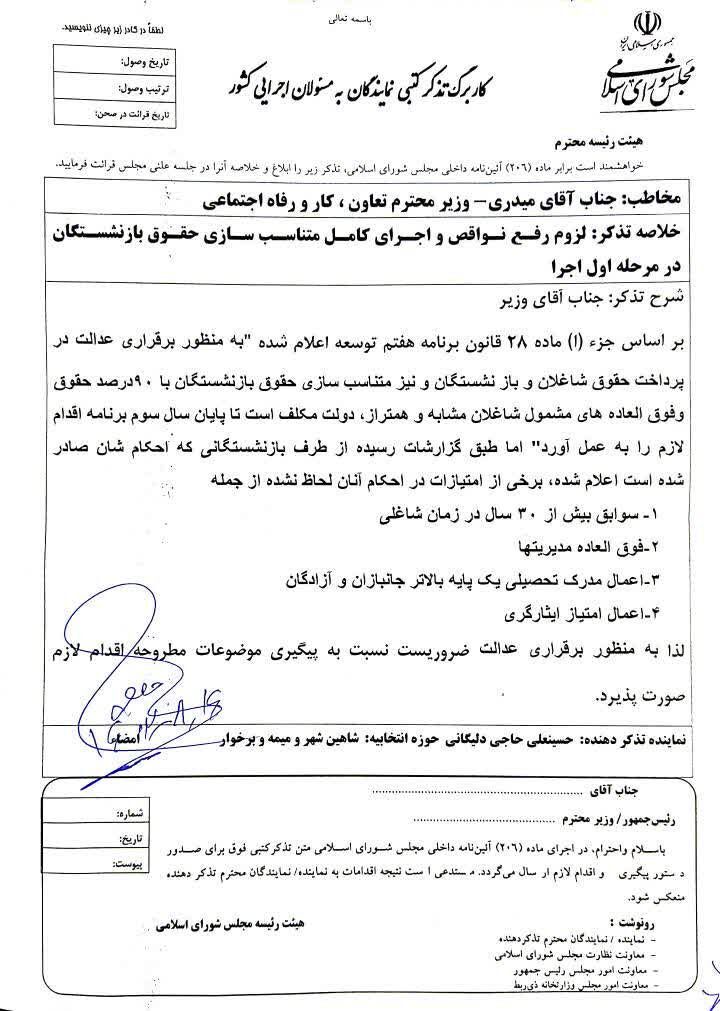 باسمه تعالی
جمهوری اسلامی ایران
مجلس شورای اسلامی
کاربرگ تذکر کتبی نمایندگان به مسئولان اجرایی کشور
لطفاً در کادر زیر چیزی ننویسید.
تاریخ وصول:
ترتیب وصول:
تاریخ قرائت در صحن:
هیئت رئیسه محترم
خواهشمند است برابر ماده (۲۰۶) آئین‌نامه داخلی مجلس شورای اسلامی، تذکر زیر را ابلاغ و خلاصه آنرا در جلسه علنی مجلس قرائت فرمایید.
مخاطب: جناب آقای میدری– وزیر محترم تعاون ، کار و رفاه اجتماعی
خلاصه تذکر: لزوم رفع نواقص و اجرای کامل متناسب سازی حقوق بازنشستگان
در مرحله اول اجرا
شرح تذکر: جناب آقای وزیر
بر اساس جزء (ا) ماده ۲۸ قانون برنامه هفتم توسعه اعلام شده "به منظور برقراری عدالت در
پرداخت حقوق شاغلان و باز نشستگان و نیز متناسب سازی حقوق بازنشستگان با ۹۰درصد حقوق
وفوق العاده های مشمول شاغلان مشابه و همتراز، دولت مکلف است تا پایان سال سوم برنامه اقدام
لازم را به عمل آورد" اما طبق گزارشات رسیده از طرف بازنشستگانی که احکام شان صادر
شده است اعلام شده، برخی از امتیازات در احکام آنان لحاظ نشده از جمله
۱- سوابق بیش از ۳۰ سال در زمان شاغلی
۲-فوق العاده مدیریتها
۳-اعمال مدرک تحصیلی یک پایه بالاتر جانبازان و آزادگان
۴-اعمال امتیاز ایثارگری
لذا به منظور برقراری عدالت ضروریست نسبت به پیگیری موضوعات مطروحه اقدام لازم
صورت پذیرد.
نماینده تذکر دهنده: حسینعلی حاجی دلیگانی حوزه انتخابیه: شاهین شهر و میمه و برخوار امضاء
جناب آقای ................................
رئیس‌جمهور/ وزیر محترم ................................
شماره:
تاریخ:
پیوست:
باسلام واحترام، در اجرای ماده (۲۰۶) آئین‌نامه داخلی مجلس شورای اسلامی متن تذکرکتبی فوق برای صدور
دستور پیگیری و اقدام لازم ارسال می‌گردد. مستدعی است نتیجه اقدامات به نماینده/ نمایندگان محترم تذکر دهنده
منعکس شود.
هیئت رئیسه مجلس شورای اسلامی
رونوشت :
- نماینده / نمایندگان محترم تذکردهنده
- معاونت نظارت مجلس شورای اسلامی
- معاونت امور مجلس رئیس جمهور
- معاونت امور مجلس وزارتخانه ذی‌ربط